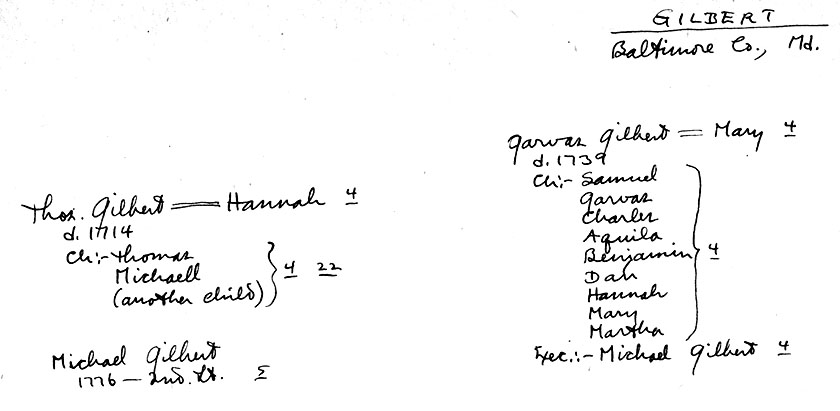 GILBERT
Baltimore Co., Md.
Thos. Gilbert == Hannah 4
d. 1714
Ch:- Thomas
Michaell
(another child)
4 22
Michael Gilbert
1776 — 2nd. Lt. 5
Garvas Gilbert = Mary 4
d. 1739
Ch:- Samuel
Garvas
Charles
Aquila
Benjamin 4
Dan
Hannah
Mary
Martha
Exec:- Michael Gilbert 4